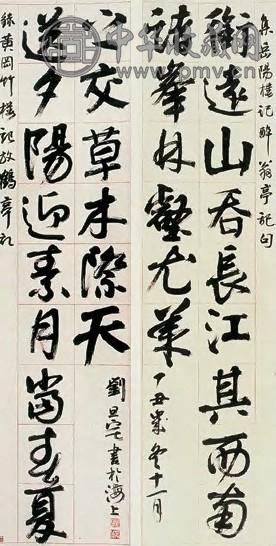 集岳陽樓記醉翁亭記句
銜遠山吞長江其西南
諸峯林壑尤美
丁丑歲冬十一月
錄黃岡竹樓記放鶴亭記
送夕陽迎素月當春夏
之交草木際天
劉旦宅書於海上
中华收藏网
www.pmv.cn